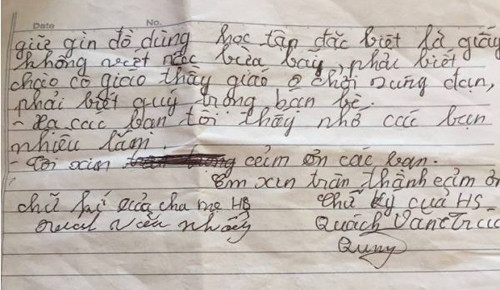 Date No.
giữ gìn đồ dùng học tập đặc biệt là giấy
không viết bừa bảy, phải biết
chào cô giáo thầy giáo chơi súng đạn,
phải biết quý trọng bạn bè.
- Xa các bạn tôi thấy nhớ các bạn
nhiều lắm.
- Tôi xin cảm ơn các bạn.
Em xin trân thành cảm ơn
chữ kí của cha mẹ HS Chữ ký của HS
Quách Văn